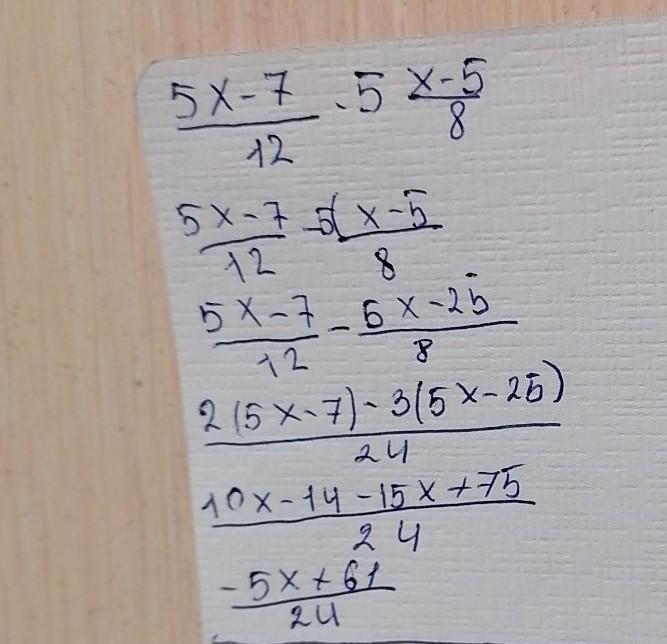 5x-7/12 - 5 x-5/8
5x-7/12 - 5(x-5/8
5x-7/12 - 5x-25/8
2(5x-7)-3(5x-25)/24
10x-14-15x+75/24
-5x+61/24